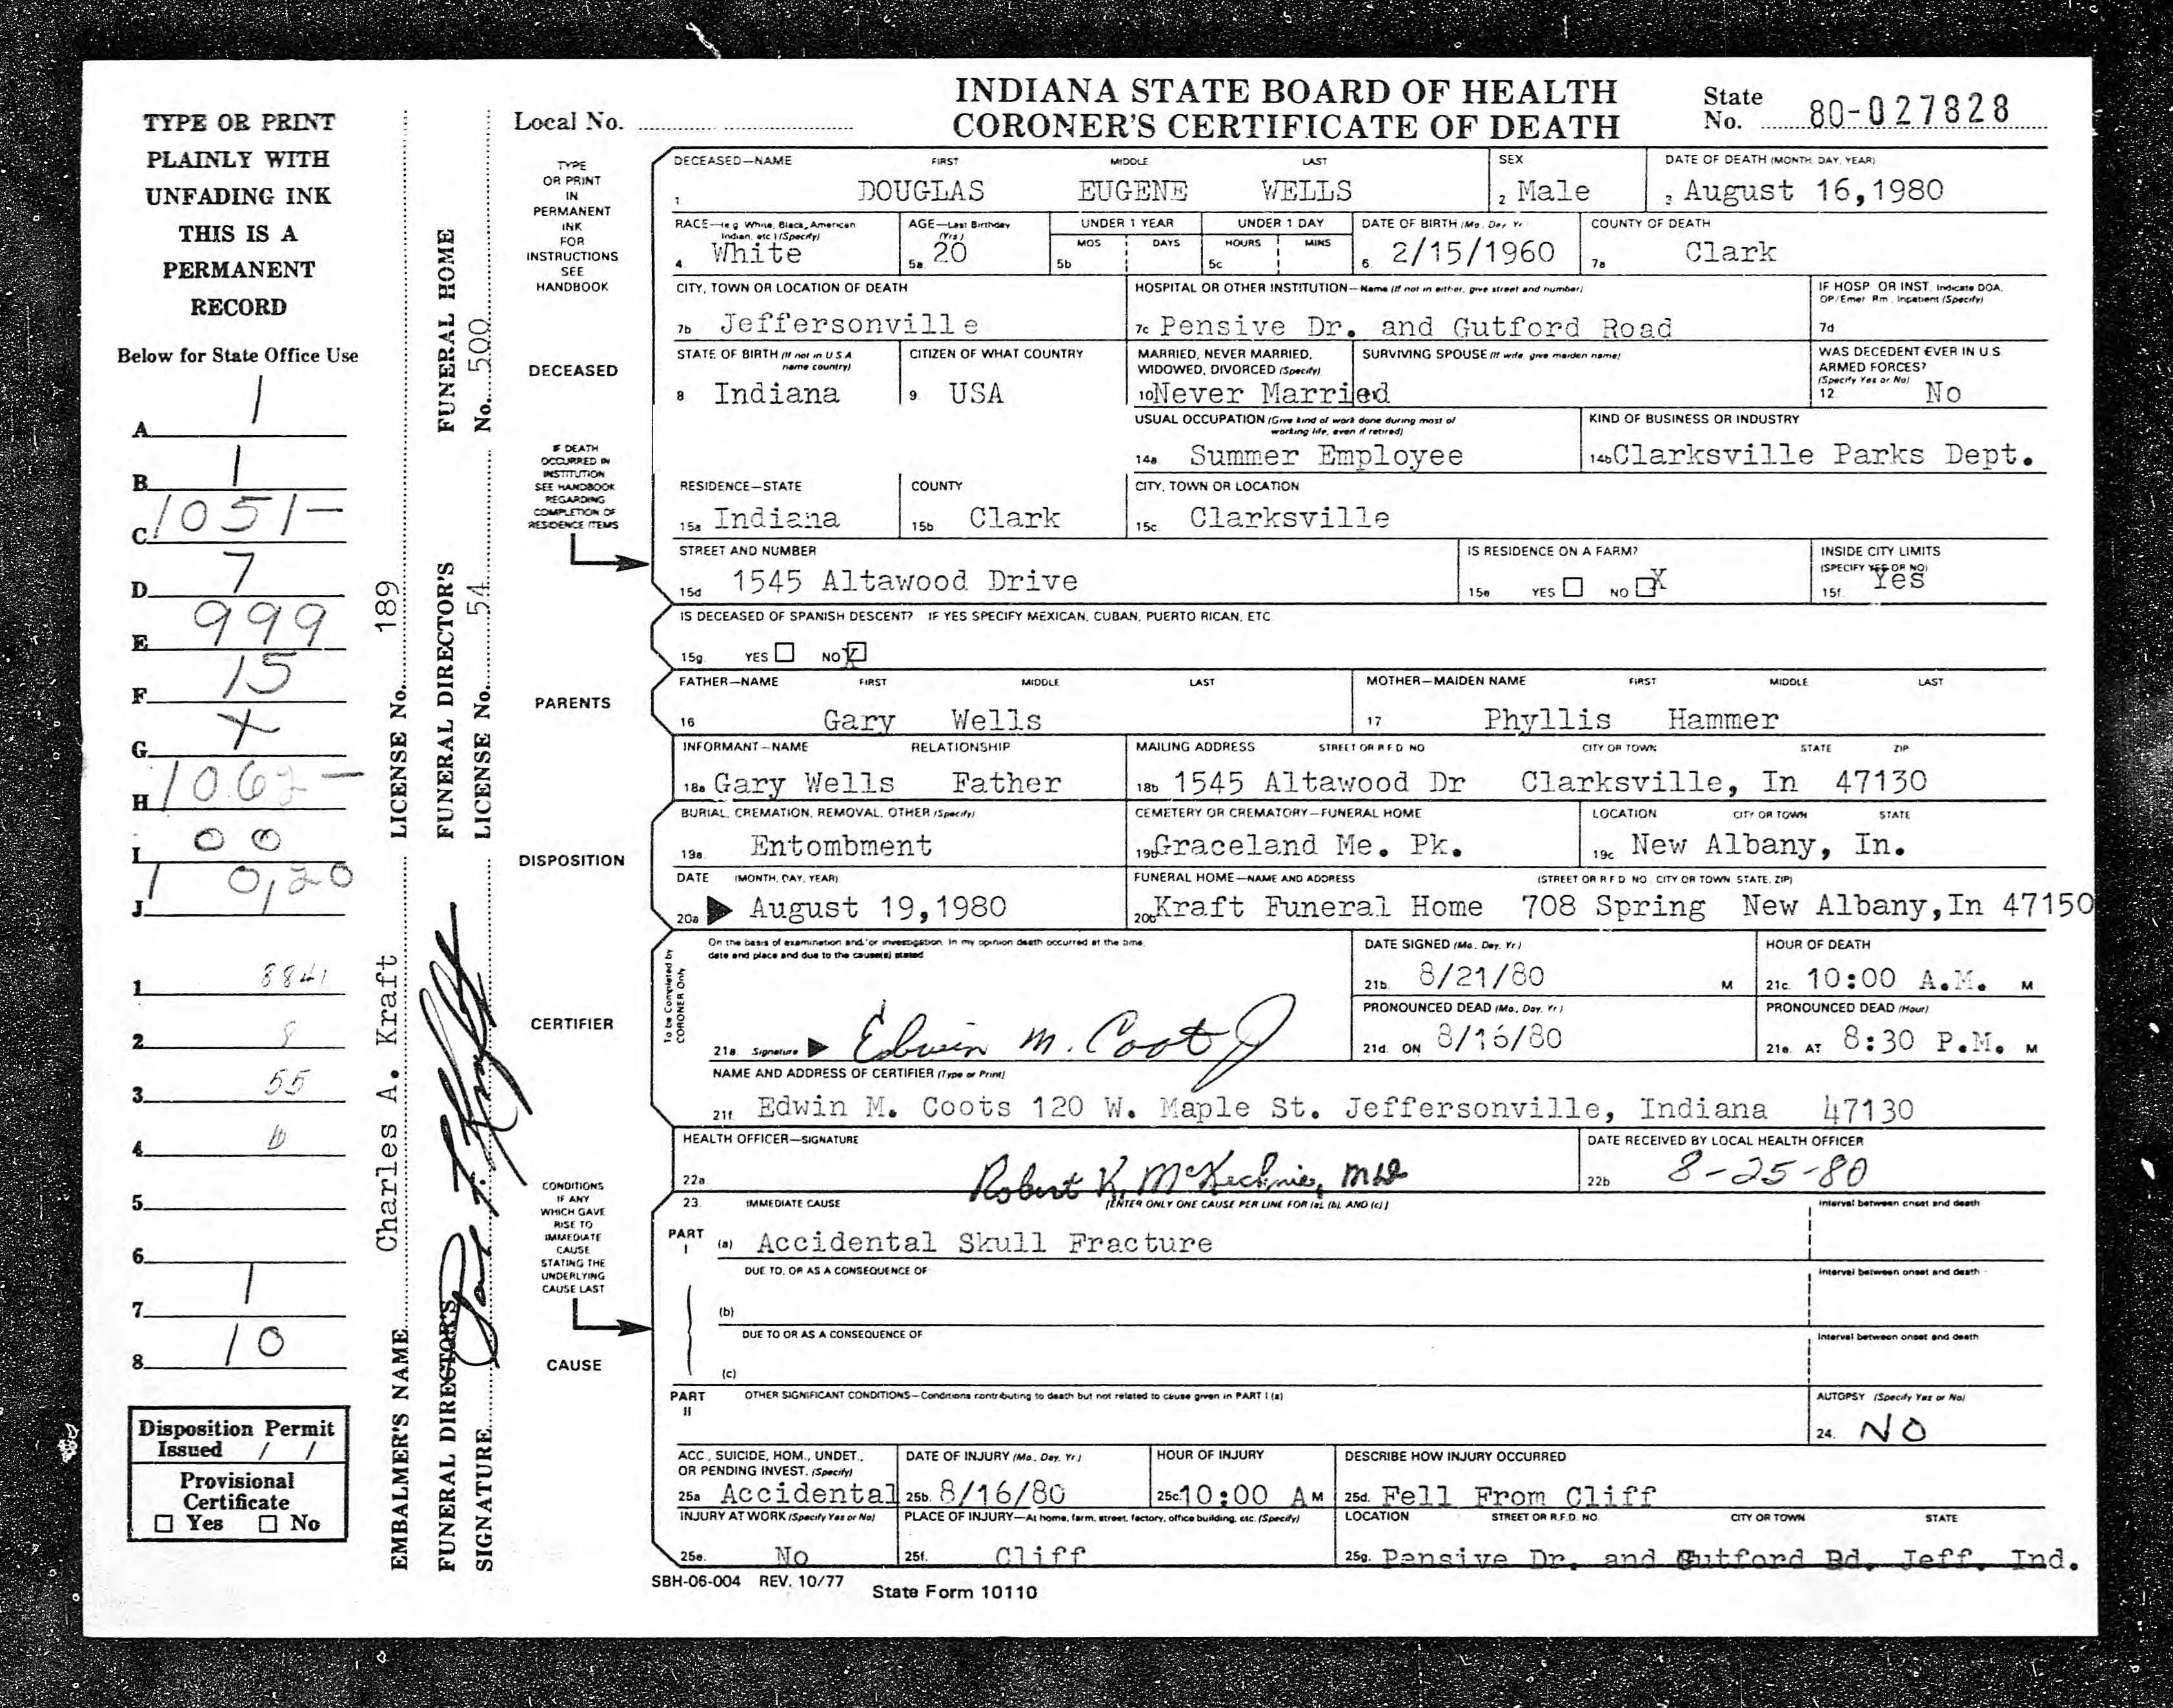 INDIANA STATE BOARD OF HEALTH
CORONER'S CERTIFICATE OF DEATH
Local No.
State No. 80-027828
TYPE OR PRINT
PLAINLY WITH
UNFADING INK
THIS IS A
PERMANENT
RECORD
Below for State Office Use
A 1
B 1
C 1051-
D 7
E 999
F 15
G X
H
I 00
J
1 8841
2 8
3 55
4
5
6
7 1
8 10
Disposition Permit
Issued / /
Provisional
Certificate
☐ Yes ☐ No
EMBALMER'S NAME Charles A. Kraft LICENSE No. 189
FUNERAL DIRECTOR'S SIGNATURE
FUNERAL DIRECTOR'S LICENSE No. 54
FUNERAL HOME No. 500
TYPE
OR PRINT
IN
PERMANENT
INK
FOR
INSTRUCTIONS
SEE
HANDBOOK
DECEASED
IF DEATH
OCCURRED IN
INSTITUTION
SEE HANDBOOK
REGARDING
COMPLETION OF
RESIDENCE ITEMS
PARENTS
DISPOSITION
CERTIFIER
CONDITIONS
IF ANY
WHICH GAVE
RISE TO
IMMEDIATE
CAUSE
STATING THE
UNDERLYING
CAUSE LAST
CAUSE
DECEASED—NAME FIRST MIDDLE LAST SEX DATE OF DEATH (MONTH, DAY, YEAR)
1 DOUGLAS EUGENE WELLS 2 Male 3 August 16,1980
RACE—(e.g. White, Black, American Indian, etc.) (Specify) AGE—Last Birthday (Yrs.) UNDER 1 YEAR MOS DAYS UNDER 1 DAY HOURS MINS DATE OF BIRTH (Mo., Day, Yr.) COUNTY OF DEATH
4 White 5a 20 5b 5c 6. 2/15/1960 7a Clark
CITY, TOWN OR LOCATION OF DEATH HOSPITAL OR OTHER INSTITUTION—Name (If not in either, give street and number) IF HOSP. OR INST. Indicate DOA, OP/Emer. Rm., Inpatient (Specify)
7b Jeffersonville 7c Pensive Dr. and Gutford Road 7d
STATE OF BIRTH (If not in U.S.A. name country) CITIZEN OF WHAT COUNTRY MARRIED, NEVER MARRIED, WIDOWED, DIVORCED (Specify) SURVIVING SPOUSE (If wife, give maiden name) WAS DECEDENT EVER IN U.S. ARMED FORCES? (Specify Yes or No)
8 Indiana 9. USA 10 Never Married 12. No
USUAL OCCUPATION (Give kind of work done during most of working life, even if retired) KIND OF BUSINESS OR INDUSTRY
14a Summer Employee 14b Clarksville Parks Dept.
RESIDENCE—STATE COUNTY CITY, TOWN OR LOCATION
15a Indiana 15b Clark 15c. Clarksville
STREET AND NUMBER IS RESIDENCE ON A FARM? INSIDE CITY LIMITS (SPECIFY YES OR NO)
15d 1545 Altawood Drive 15e YES ☐ NO ☐X 15f. Yes
IS DECEASED OF SPANISH DESCENT? IF YES SPECIFY MEXICAN, CUBAN, PUERTO RICAN, ETC.
15g. YES ☐ NO ☒
FATHER—NAME FIRST MIDDLE LAST MOTHER—MAIDEN NAME FIRST MIDDLE LAST
16 Gary Wells 17 Phyllis Hammer
INFORMANT—NAME RELATIONSHIP MAILING ADDRESS STREET OR R.F.D. NO. CITY OR TOWN STATE ZIP
18a Gary Wells Father 18b 1545 Altawood Dr Clarksville, In 47130
BURIAL, CREMATION, REMOVAL, OTHER (Specify) CEMETERY OR CREMATORY—FUNERAL HOME LOCATION CITY OR TOWN STATE
19a. Entombment 19b Graceland Me. Pk. 19c New Albany, In.
DATE (MONTH, DAY, YEAR) FUNERAL HOME—NAME AND ADDRESS (STREET OR R.F.D. NO., CITY OR TOWN, STATE, ZIP)
20a ▶ August 19,1980 20b Kraft Funeral Home 708 Spring New Albany,In 47150
To be Completed by CORONER Only
On the basis of examination and/or investigation, in my opinion death occurred at the time, date and place and due to the cause(s) stated
DATE SIGNED (Mo., Day, Yr.) HOUR OF DEATH
21b. 8/21/80 M 21c. 10:00 A.M. M
PRONOUNCED DEAD (Mo., Day, Yr.) PRONOUNCED DEAD (Hour)
21a Signature ▶ Edwin M. Coots 21d. ON 8/16/80 21e. AT 8:30 P.M. M
NAME AND ADDRESS OF CERTIFIER (Type or Print)
21f. Edwin M. Coots 120 W. Maple St. Jeffersonville, Indiana 47130
HEALTH OFFICER—SIGNATURE DATE RECEIVED BY LOCAL HEALTH OFFICER
22a. Robert K. McKechnie, MD 22b 8-25-80
23. IMMEDIATE CAUSE [ENTER ONLY ONE CAUSE PER LINE FOR (a), (b), AND (c)] Interval between onset and death
PART I (a) Accidental Skull Fracture
DUE TO, OR AS A CONSEQUENCE OF Interval between onset and death
(b)
DUE TO OR AS A CONSEQUENCE OF Interval between onset and death
(c)
PART II OTHER SIGNIFICANT CONDITIONS—Conditions contributing to death but not related to cause given in PART I (a) AUTOPSY (Specify Yes or No)
24. NO
ACC., SUICIDE, HOM., UNDET., OR PENDING INVEST. (Specify) DATE OF INJURY (Mo., Day, Yr.) HOUR OF INJURY DESCRIBE HOW INJURY OCCURRED
25a Accidental 25b. 8/16/80 25c. 10:00 A M 25d. Fell From Cliff
INJURY AT WORK (Specify Yes or No) PLACE OF INJURY—At home, farm, street, factory, office building, etc. (Specify) LOCATION STREET OR R.F.D. NO. CITY OR TOWN STATE
25e. No 25f. Cliff 25g. Pensive Dr. and Gutford Rd. Jeff. Ind.
SBH-06-004 REV. 10/77 State Form 10110